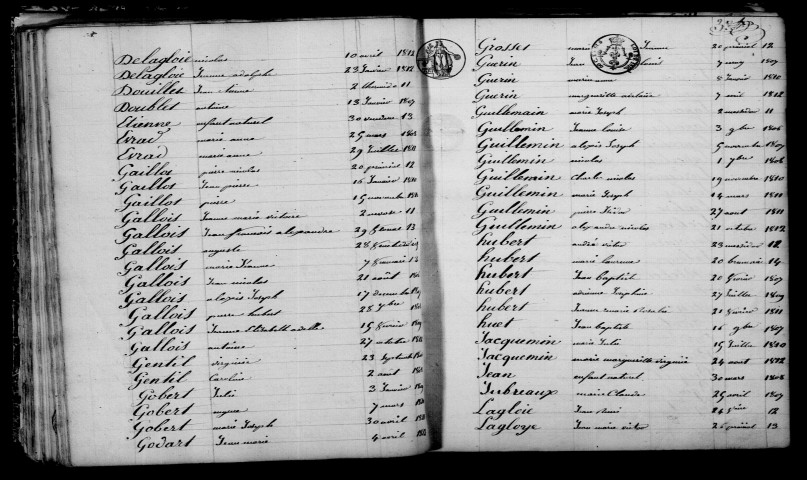 Delagloie nicolas 10 avril 1812
Delagloie Jeanne adolph 23 Janvier 1812
Douillet Jean 2 thermidor 11
Doublet antoine 13 Janvier 1807
Etienne enfant naturel 30 13
Evrad marie anne 25 mars 1808
Evrad marie anne 29 Juillet
Gaillot pierre nicolas 20 12
Gaillot Jean pierre 16 Janvier 1810
Gaillot pierre 15 novembre
Gallois Jeanne marie victoire 2 11
Gallois Jean francois alexandre 29 13
Gallois auguste 28
Gallois marie Jeanne 7 13
Gallois Jean nicolas 21 août
Gallois alexis Joseph 17
Gallois pierre hubert 28 7bre
Gallois Jeanne Elizabeth adelle 15 fevrier
Gallois antoine 27 octobre
Gentil virginie 23 septembre
Gentil Caroline 2 août
Gobert Julie 3 Janvier
Gobert 7 mars
Gobert marie Joseph 30 avril
Godart Jean marie 4 avril
Grosset marie Jeanne 12
Guerin Jean 7 may 1807
Guerin marie anne 8 Janvier 1810
Guerin margueritte adelaine 7 avril 1812
Guillemain marie Joseph 2 11
Guillemin Jeanne Louise 3 9bre 1806
Guillemin alexis Joseph 5 novembre 1807
Guillemin nicolas 1 7bre 1808
Guillemin Charle nicolas 19 novembre 1810
Guillemin marie Joseph 14 mars 1811
Guillemin pierre 27 aout 1811
Guillemin alexandre nicolas 21 octobre 1812
hubert andré victor 23 messidor 12
hubert marie laurence 20 brumaire 14
hubert Jean baptiste 20 fevrier 1807
hubert adrienne Josephine 27 Juillet 1809
hubert Jeanne marie Rosalie 21 fevrier 1811
huet Jean baptiste 16 9bre 1807
Jacquemin marie Julie 15 Juillet 1810
Jacquemin marie margueritte virginie 24 aout 1812
Jean enfant naturel 30 mars 1808
Jubreaux marie Claude 25 avril 1807
Lagloie Jean 12
Lagloye Jean marie victor 13